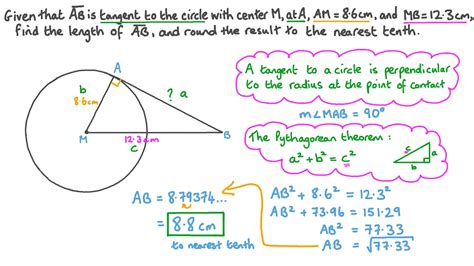 Given that AB is tangent to the circle with center M, at A, AM = 8.6cm, and MB = 12.3cm,
find the length of AB, and round the result to the nearest tenth.
A
b
8.6cm
? a
M
12.3cm
B
c
A tangent to a circle is perpendicular
to the radius at the point of contact
m∠MAB = 90°
The Pythagorean theorem:
a² + b² = c²
c
a
b
AB² + 8.6² = 12.3²
AB² + 73.96 = 151.29
AB² = 77.33
AB = √77.33
AB = 8.79374...
= 8.8 cm
to nearest tenth